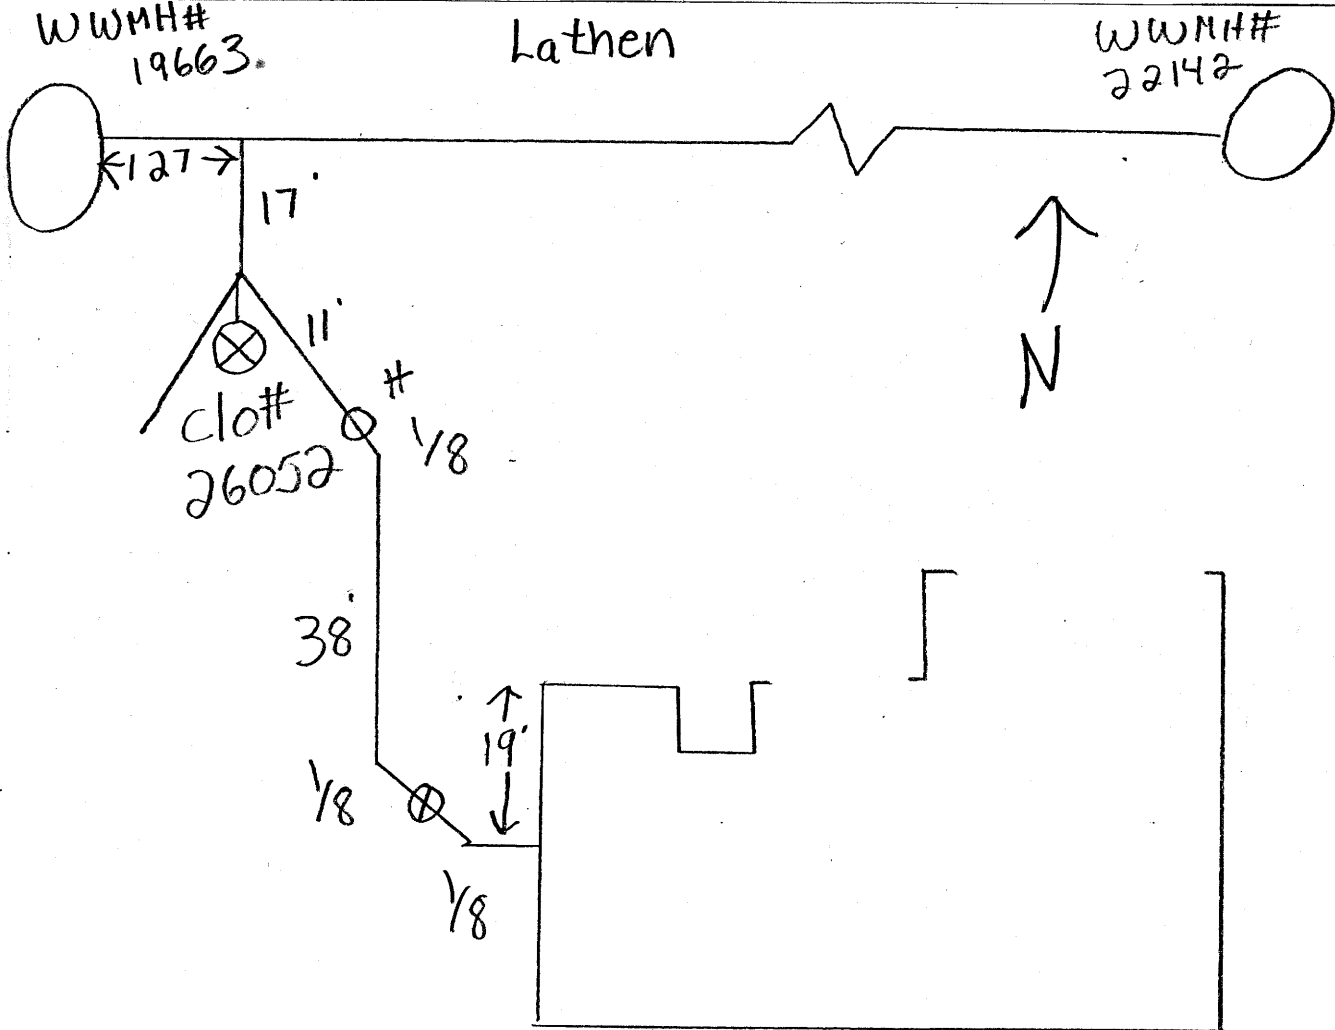 WWMH#
19663.
Lathen
WWMH#
22142
127
17'
11'
#
1/8
Clo#
26052
N
38'
19'
1/8
1/8